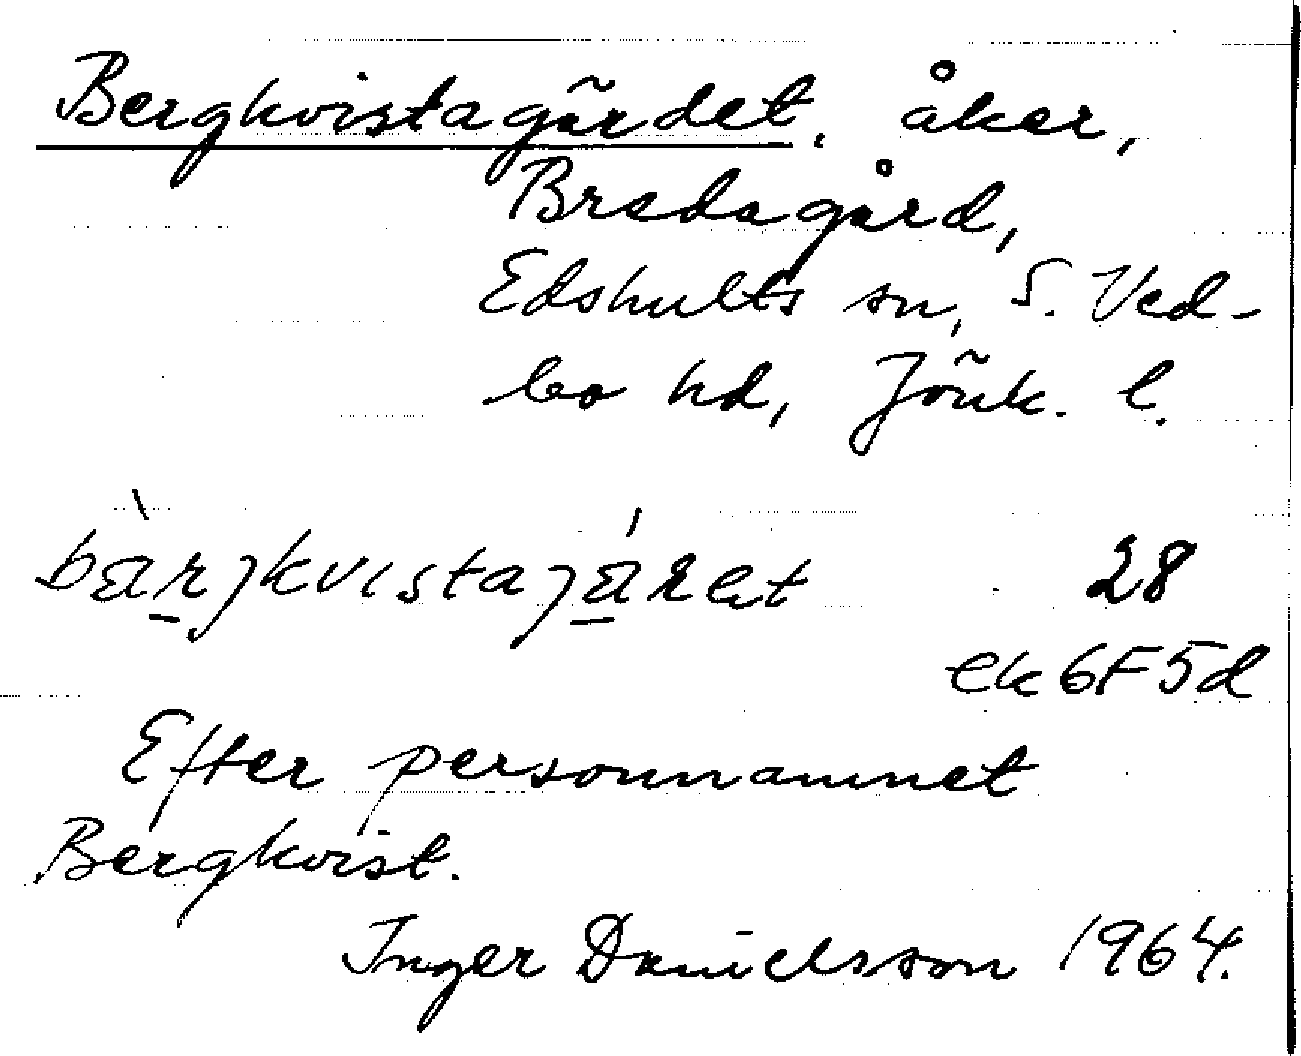 Bergkvistagärdet, åker,
Bredagård,
Edshults sn, S. Ved-
bo hd, Jönk. l.
bär̠jkvɩstajä̠ret 28
ek 6F5d
Efter personnamnet
Bergkvist.
Inger Danielsson 1964.